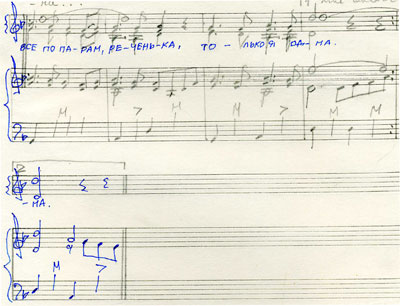 - на...
ВСЕ ПО ПА-РАМ, РЕ-ЧЕНЬ-КА, ТО - ЛЬКО Я ОД-НА.
М > М > М
2.
- МА.
М >